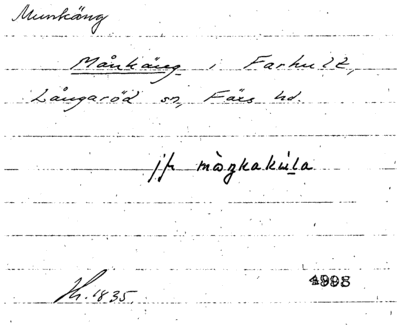 Munkäng
Månkäng i Farhult,
Långaröd sn, Färs hd.
jfr mòŋkakùla
Hr. 1835
4998